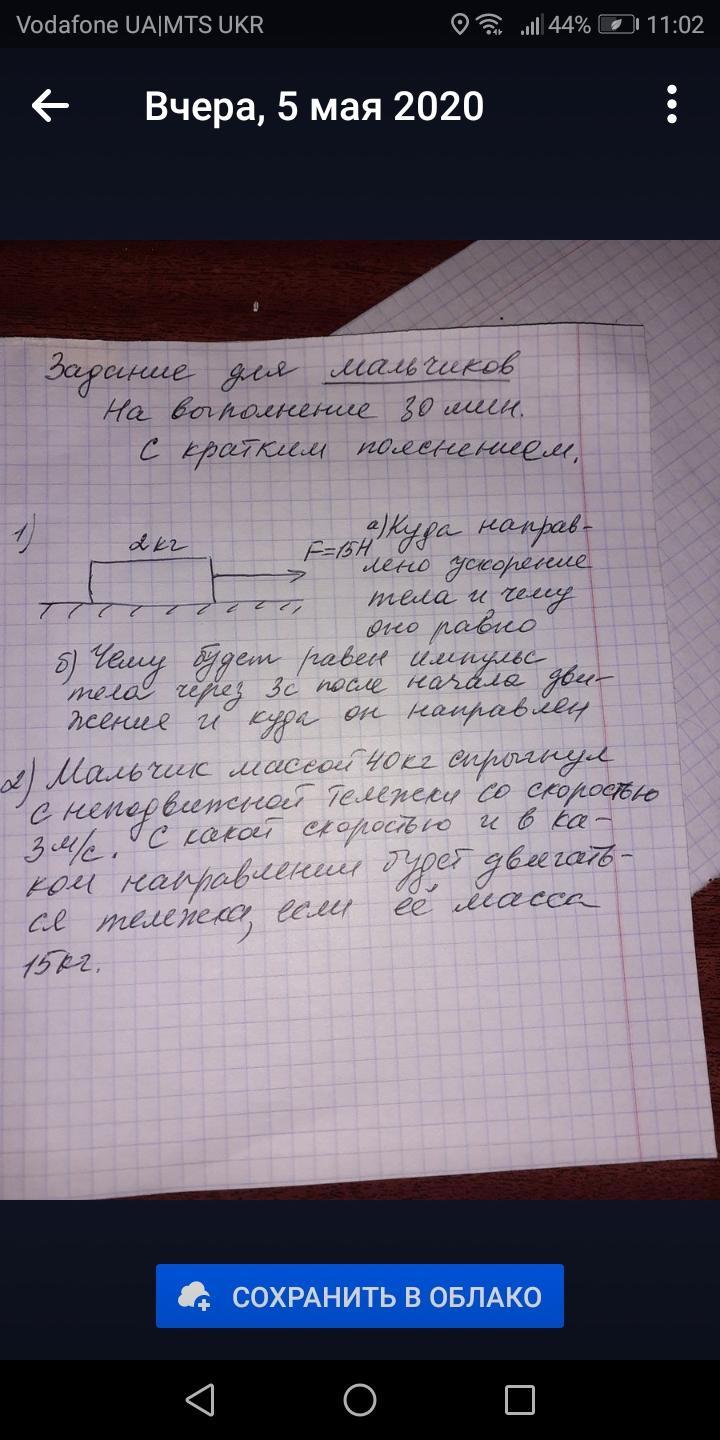 Vodafone UA|MTS UKR 44% 11:02
Вчера, 5 мая 2020
Задание для мальчиков
На выполнение 30 мин.
С кратким пояснением.
1)
2кг
F=15Н
а) Куда направ-
лено ускорение
тела и чему
оно равно
б) Чему будет равен импульс
тела через 3с после начала дви-
жение и куда он направлен
2) Мальчик массой 40кг спрыгнул
с неподвижной тележки со скоростью
3 м/с. С какой скоростью и в ка-
ком направлении будет двигать-
ся тележка, если её масса
15кг.
СОХРАНИТЬ В ОБЛАКО